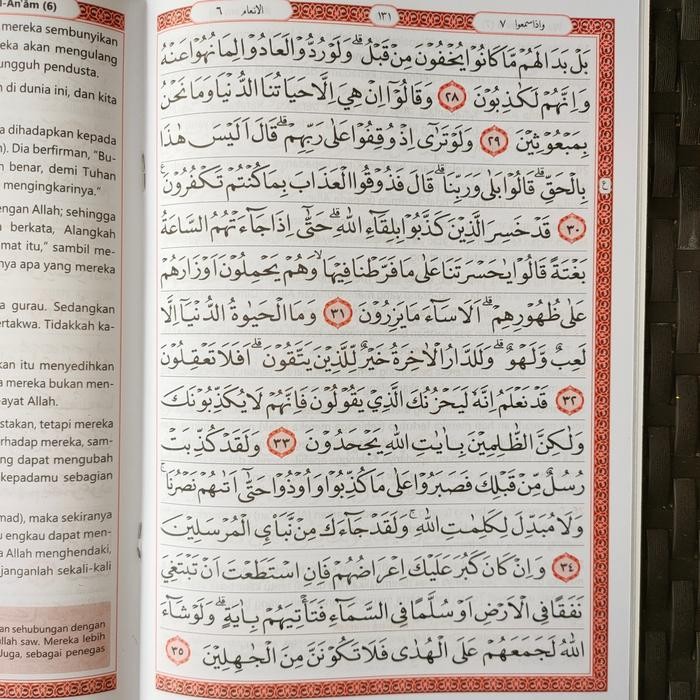 l-An'ām (6)
mereka sembunyikan
eka akan mengulang
ungguh pendusta.
di dunia ini, dan kita
dihadapkan kepada
n). Dia berfirman, "Bu-
benar, demi Tuhan
mengingkarinya."
engan Allah; sehingga
berkata, Alangkah
mat itu," sambil me-
nya apa yang mereka
a gurau. Sedangkan
ertakwa. Tidakkah ka-
kan itu menyedihkan
a mereka bukan men-
ayat Allah.
stakan, tetapi mereka
rhadap mereka, sam-
ng dapat mengubah
kepadamu sebagian
mad), maka sekiranya
u engkau dapat men-
a Allah menghendaki,
janganlah sekali-kali
an sehubungan dengan
ullah saw. Mereka lebih
Juga, sebagai penegas
واذا سمعوا ٧
١٣١
الانعام ٦
بَلْ بَدَا لَهُمْ مَّا كَانُوْا يُخْفُوْنَ مِنْ قَبْلُ ۗ وَلَوْ رُدُّوْا لَعَادُوْا لِمَا نُهُوْا عَنْهُ
وَاِنَّهُمْ لَكٰذِبُوْنَ ٢٨ وَقَالُوْٓا اِنْ هِيَ اِلَّا حَيَاتُنَا الدُّنْيَا وَمَا نَحْنُ
بِمَبْعُوْثِيْنَ ٢٩ وَلَوْ تَرٰٓى اِذْ وُقِفُوْا عَلٰى رَبِّهِمْ ۗ قَالَ اَلَيْسَ هٰذَا
بِالْحَقِّ ۗ قَالُوْا بَلٰى وَرَبِّنَا ۗ قَالَ فَذُوْقُوا الْعَذَابَ بِمَا كُنْتُمْ تَكْفُرُوْنَ ࣖ
ع
٣٠ قَدْ خَسِرَ الَّذِيْنَ كَذَّبُوْا بِلِقَاۤءِ اللّٰهِ ۗ حَتّٰٓى اِذَا جَاۤءَتْهُمُ السَّاعَةُ
بَغْتَةً قَالُوْا يٰحَسْرَتَنَا عَلٰى مَا فَرَّطْنَا فِيْهَا ۙ وَهُمْ يَحْمِلُوْنَ اَوْزَارَهُمْ
عَلٰى ظُهُوْرِهِمْ ۗ اَلَا سَاۤءَ مَا يَزِرُوْنَ ٣١ وَمَا الْحَيٰوةُ الدُّنْيَآ اِلَّا
لَعِبٌ وَّلَهْوٌ ۗ وَلَلدَّارُ الْاٰخِرَةُ خَيْرٌ لِّلَّذِيْنَ يَتَّقُوْنَ ۗ اَفَلَا تَعْقِلُوْنَ
٣٢ قَدْ نَعْلَمُ اِنَّهٗ لَيَحْزُنُكَ الَّذِيْ يَقُوْلُوْنَ فَاِنَّهُمْ لَا يُكَذِّبُوْنَكَ
وَلٰكِنَّ الظّٰلِمِيْنَ بِاٰيٰتِ اللّٰهِ يَجْحَدُوْنَ ٣٣ وَلَقَدْ كُذِّبَتْ
رُسُلٌ مِّنْ قَبْلِكَ فَصَبَرُوْا عَلٰى مَا كُذِّبُوْا وَاُوْذُوْا حَتّٰٓى اَتٰىهُمْ نَصْرُنَا ۚ
وَلَا مُبَدِّلَ لِكَلِمٰتِ اللّٰهِ ۚ وَلَقَدْ جَاۤءَكَ مِنْ نَّبَإِ۟ى الْمُرْسَلِيْنَ
٣٤ وَاِنْ كَانَ كَبُرَ عَلَيْكَ اِعْرَاضُهُمْ فَاِنِ اسْتَطَعْتَ اَنْ تَبْتَغِيَ
نَفَقًا فِى الْاَرْضِ اَوْ سُلَّمًا فِى السَّمَاۤءِ فَتَأْتِيَهُمْ بِاٰيَةٍ ۗ وَلَوْ شَاۤءَ
اللّٰهُ لَجَمَعَهُمْ عَلَى الْهُدٰى فَلَا تَكُوْنَنَّ مِنَ الْجٰهِلِيْنَ ٣٥